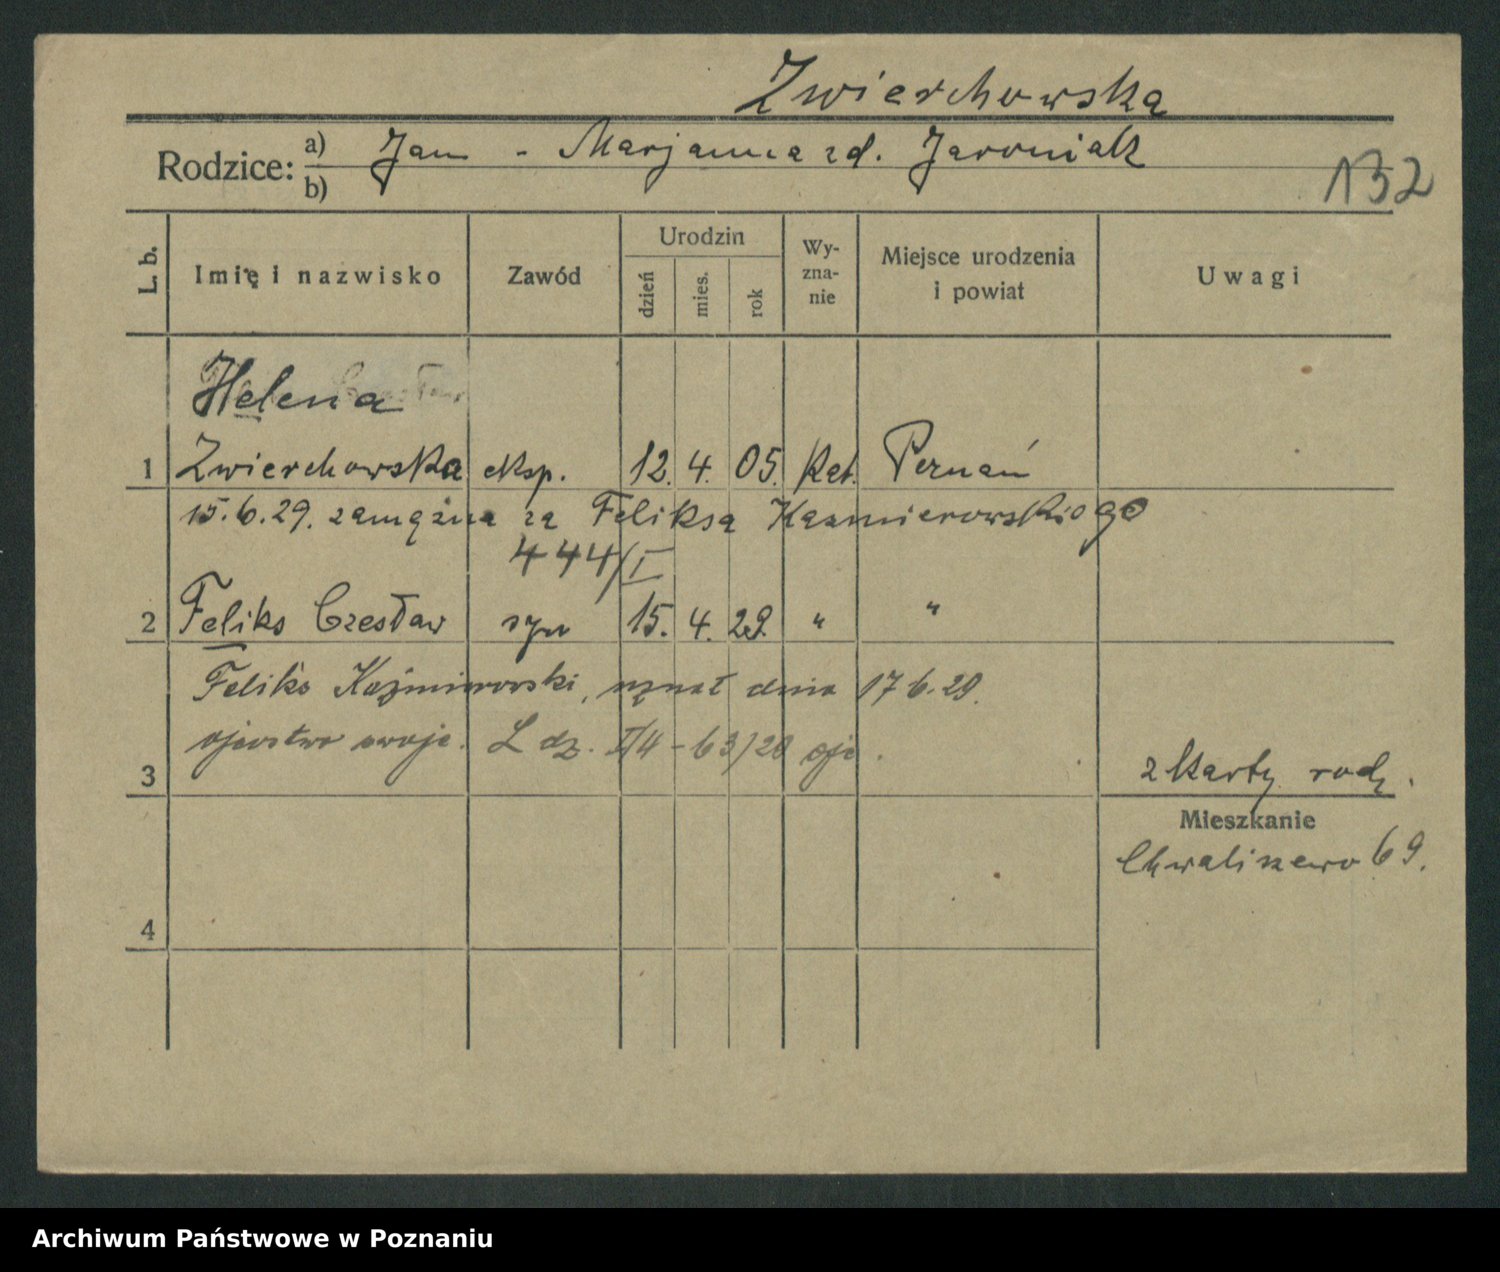 Zwierchowska
Rodzice: a) Jan - Marjanna zd. Jaroniak
b)
132
L. b. Imię i nazwisko Zawód Urodzin dzień mies. rok Wy-zna-nie Miejsce urodzenia i powiat Uwagi
Helena
1 Zwierchowska eksp. 12. 4. 05. kat. Poznań
15.6.29. zamężna za Feliksa Kaźmierowskiego
444/I
2 Feliks Czesław syn 15. 4. 29. " "
Feliks Kaźmierowski, uznał dnia 17 6. 29.
ojcostwo swoje. L dz. II/4 - 63/20
3
z karty rodz.
Mieszkanie
Chwaliszewo 69.
4
Archiwum Państwowe w Poznaniu